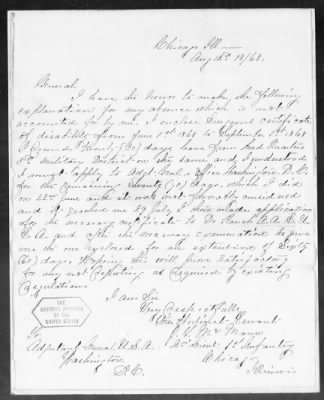 Chicago Ill—
Aug 18th 18/68.
General
I have the honor to make the following
explanation for any absence which is not
accounted for by me. I enclose Surgeons Certificate
of disability from June 1st 1868 to September 1st 1868
I Twenty (20) days leave from Head Quarters
5th Military District on the same and I understood
I must apply to Adjt. Genl's office Washington, D.C.
for the remaining Seventy (70) days, which I did
on 22nd June and it was not favorably considered
and it reached me July I then made application
for the necessary certificate to Dr. U.S.
A. and after the necessary examination he gave
me the one enclosed for the extension of Sixty
(60) days. Hoping this will prove satisfactory
for my not reporting as required by existing
regulations
I am Sir
Very Respectfully
Your Obedient Servant
Mann
2d Lieut 1st Infantry
Chicago
Illinois
To
Adjutant General U.S.A.
Washington
D.C.
THE
NATIONAL ARCHIVES
OF THE
UNITED STATES